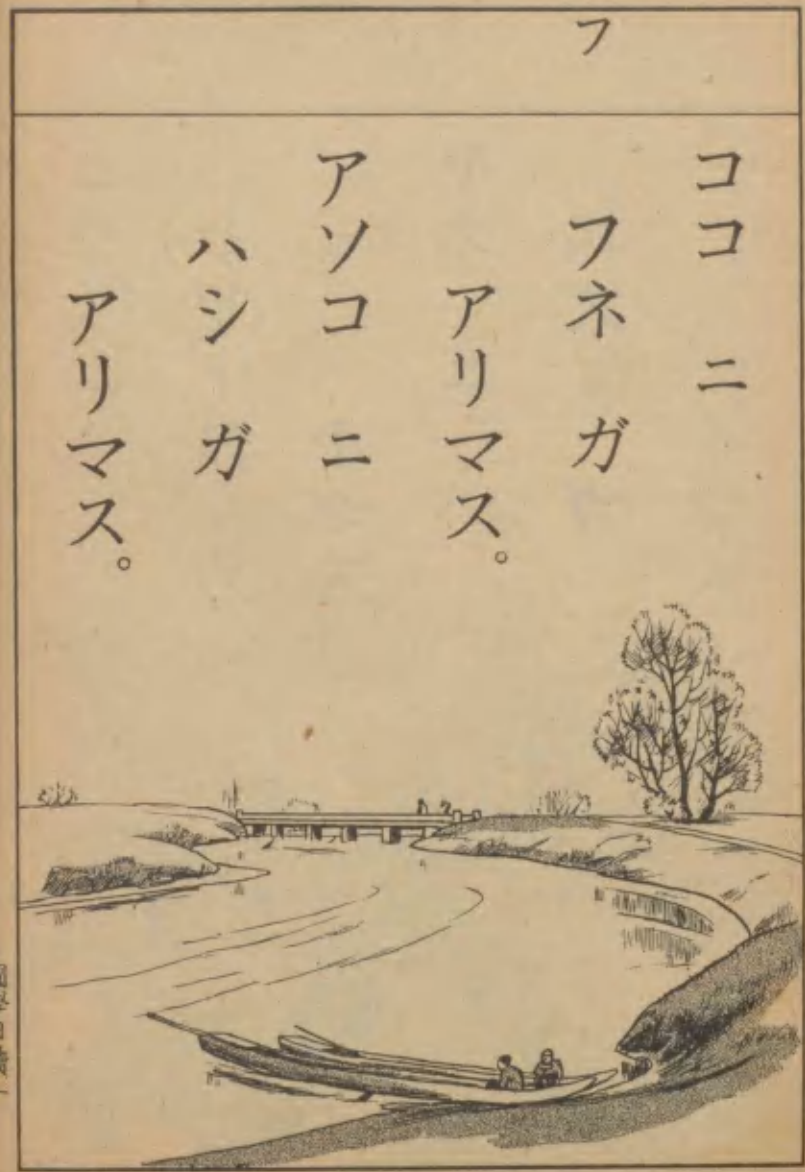 フ
ココ ニ
フネ ガ
アリマス。
アソコ ニ
ハシ ガ
アリマス。